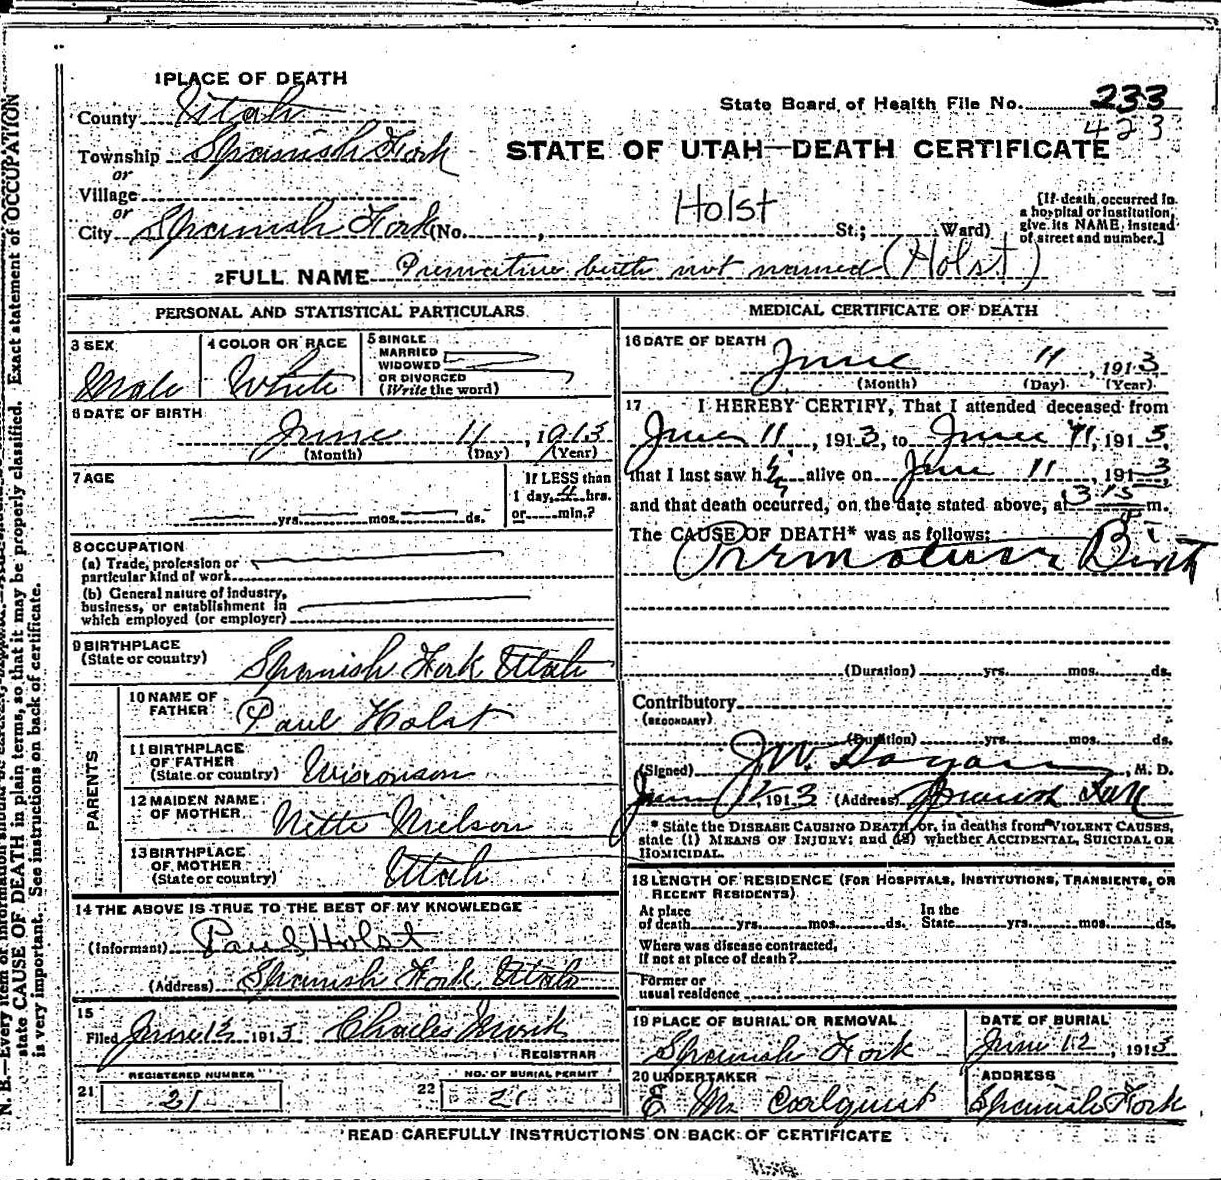 1 PLACE OF DEATH
State Board of Health File No. 233
423
County Utah
Township Spanish Fork
or
STATE OF UTAH—DEATH CERTIFICATE
Village
or
City Spanish Fork (No. , Holst St.; Ward)
[If death occurred in
a hospital or institution,
give its NAME, instead
of street and number.]
2 FULL NAME Premature birth not named (Holst)
PERSONAL AND STATISTICAL PARTICULARS
3 SEX
Male
4 COLOR OR RACE
White
5 SINGLE
MARRIED
WIDOWED
OR DIVORCED
(Write the word)
6 DATE OF BIRTH
June 11, 1913
(Month) (Day) (Year)
7 AGE
yrs. mos. ds.
If LESS than
1 day, 4 hrs.
or min.?
8 OCCUPATION
(a) Trade, profession or
particular kind of work
(b) General nature of industry,
business, or establishment in
which employed (or employer)
9 BIRTHPLACE
(State or country) Spanish Fork Utah
PARENTS
10 NAME OF
FATHER Paul Holst
11 BIRTHPLACE
OF FATHER
(State or country) Wisconson
12 MAIDEN NAME
OF MOTHER Nette Nielson
13 BIRTHPLACE
OF MOTHER
(State or country) Utah
14 THE ABOVE IS TRUE TO THE BEST OF MY KNOWLEDGE
(Informant) Paul Holst
(Address) Spanish Fork Utah
15
Filed June 12 1913 Charles Monk
REGISTRAR
REGISTERED NUMBER
21 21
NO. OF BURIAL PERMIT
22 21
MEDICAL CERTIFICATE OF DEATH
16 DATE OF DEATH
June 11, 1913
(Month) (Day) (Year)
17 I HEREBY CERTIFY, That I attended deceased from
June 11, 1913, to June 11, 1913,
that I last saw h alive on June 11 1913
and that death occurred, on the date stated above, at 3 15 m.
The CAUSE OF DEATH* was as follows:
Premature Birth
(Duration) yrs. mos. ds.
Contributory
(SECONDARY)
(Duration) yrs. mos. ds.
(Signed) J.W. Hagan, M. D.
June 12, 1913 (Address) Spanish Fork
* State the DISEASE CAUSING DEATH, or, in deaths from VIOLENT CAUSES,
state (1) MEANS OF INJURY; and (2) whether ACCIDENTAL, SUICIDAL OR
HOMICIDAL.
18 LENGTH OF RESIDENCE (FOR HOSPITALS, INSTITUTIONS, TRANSIENTS, OR
RECENT RESIDENTS).
At place
of death yrs. mos. ds.
In the
State yrs. mos. ds.
Where was disease contracted,
If not at place of death?
Former or
usual residence
19 PLACE OF BURIAL OR REMOVAL
Spanish Fork
DATE OF BURIAL
June 12, 1913
20 UNDERTAKER
ADDRESS
Spanish Fork
READ CAREFULLY INSTRUCTIONS ON BACK OF CERTIFICATE
N. B.—Every item of information should be
state CAUSE OF DEATH in plain terms, so that it may be properly classified. Exact statement of OCCUPATION
is very important. See instructions on back of certificate.